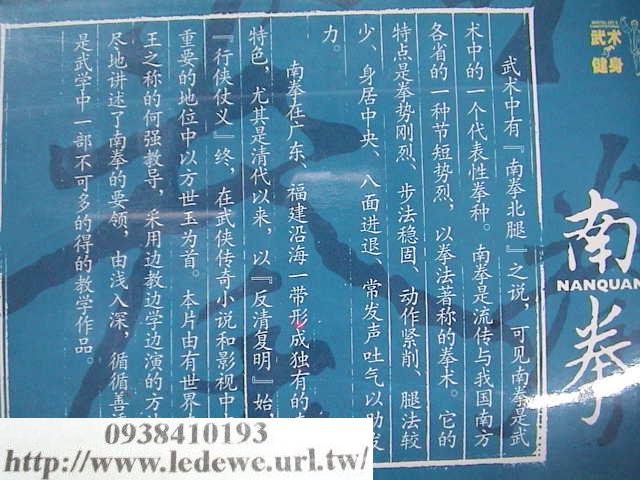 武术
健身
南拳
NANQUAN
武术中有『南拳北腿』之说，可见南拳是武
术中的一个代表性拳种。南拳是流传与我国南方
各省的一种节短势烈，以拳法著称的拳术。它的
特点是拳势刚烈、步法稳固、动作紧削、腿法较
少、身居中央、八面进退、常发声吐气以助发
力。
南拳在广东、福建沿海一带形成独有的
特色，尤其是清代以来，以『反清复明』始
『行侠仗义』终，在武侠传奇小说和影视中
重要的地位中以方世玉为首。本片由有世界
王之称的何强教导，采用边教边学边演的方
尽地讲述了南拳的要领，由浅入深，循循善
是武学中一部不可多的得的教学作品。
0938410193
http://www.ledewe.url.tw/